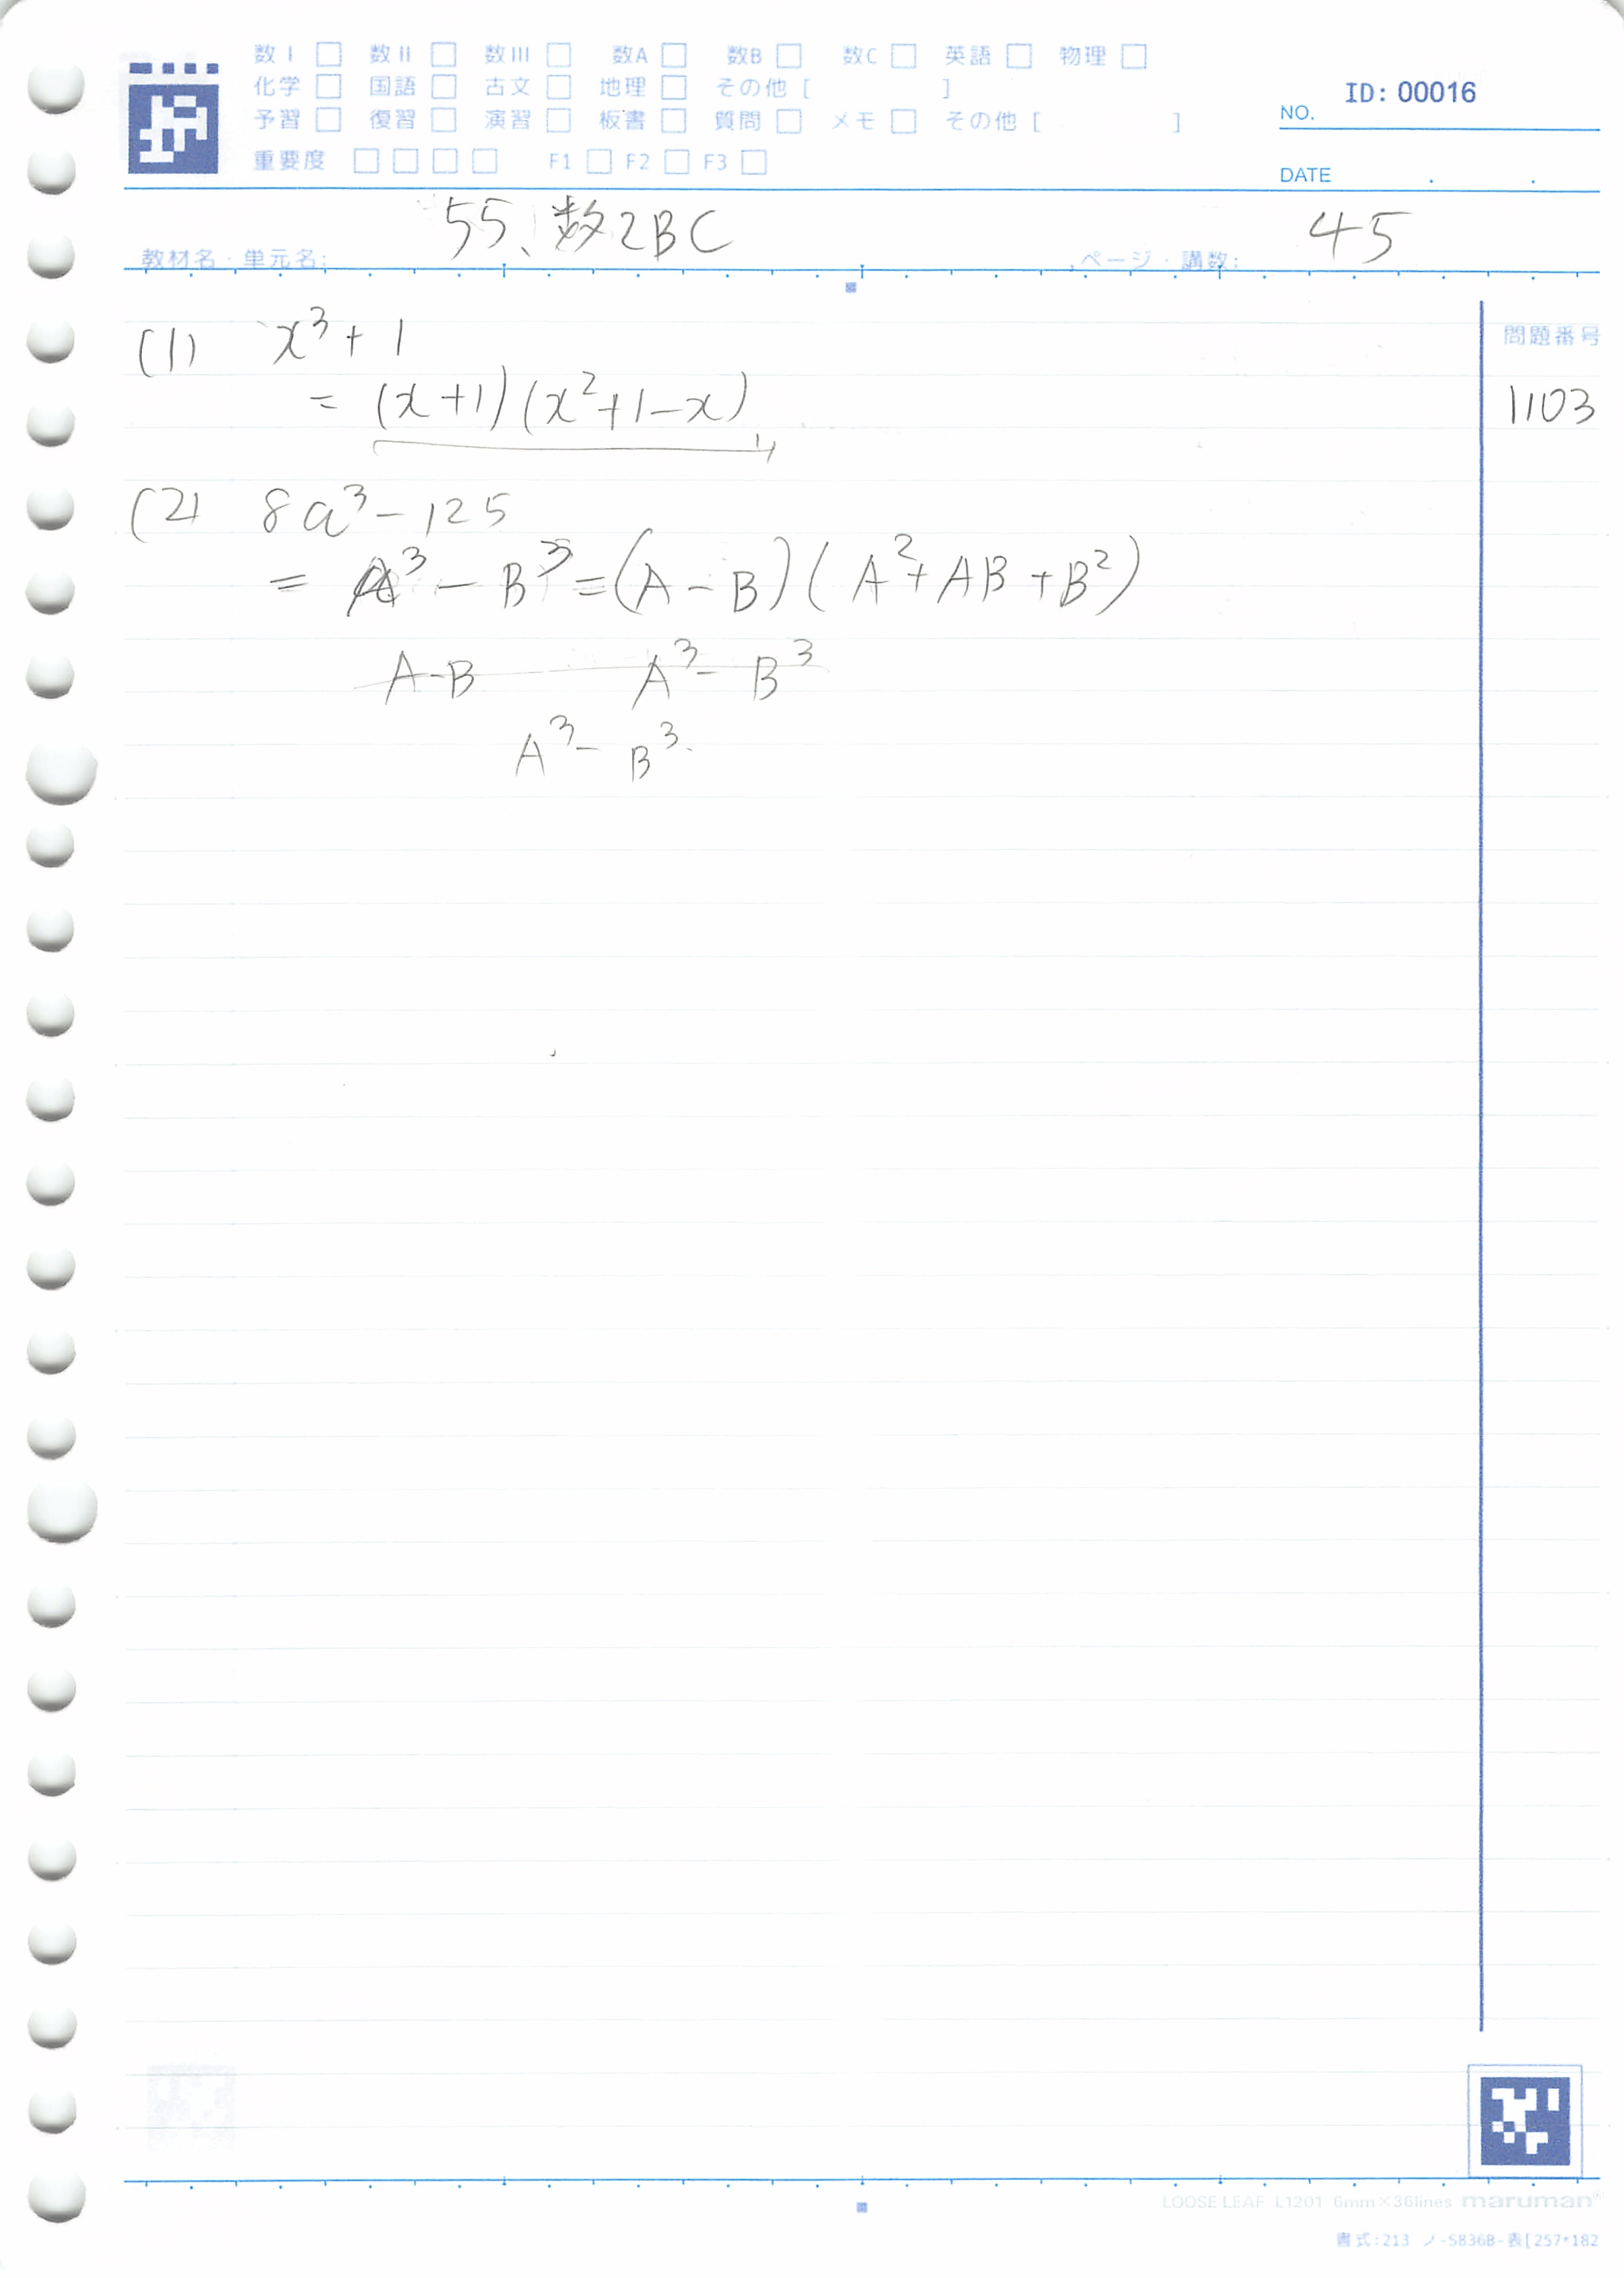 数I □ 数II □ 数III □ 数A □ 数B □ 数C □ 英語 □ 物理 □
化学 □ 国語 □ 古文 □ 地理 □ その他 [ ]
予習 □ 復習 □ 演習 □ 板書 □ 質問 □ メモ □ その他 [ ]
重要度 □ □ □ □ F1 □ F2 □ F3 □
ID: 00016
NO.
DATE . .
教材名・単元名: 55、数2BC ページ・講数: 45
問題番号
1103
(1) x³+1
= (x+1)(x²+1-x)
(2) 8a³-125
= A³-B³=(A-B)(A²+AB+B²)
A-B A³-B³
A³-B³
LOOSE LEAF L1201 6mm×36lines maruman®
書式:213 ノ-S836B-表[257*182